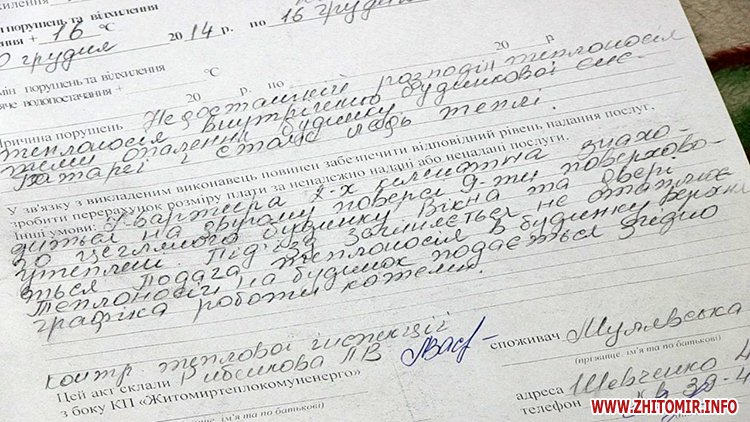 порушень та відхилення
ення + 16 °С
0 грудня 2014 р. по 16 грудня
мін порушень та відхилення
яче водопостачання + °С
20 р. по 20 р
Причина порушень Недостатній розподіл теплоносія
теплоносія внутрішньо будинкової сис-
теми опалення будинку.
батареї і стояк ледь теплі.
У зв'язку з викладеним виконавець повинен забезпечити відповідний рівень надання послуг,
зробити перерахунок розміру плати за неналежно надані або ненадані послуги.
Інші умови: Квартира 2-х кімнатна знахо-
диться на другому поверсі 9-ти поверхово-
го цегляного будинку Вікна та двері
утеплені Під'їзд зачиняється не опалює
ться Подача теплоносія в будинку верхня
Теплоносій на будинок подається згідно
графіка роботи котельні.
контр теплової інспекції
Цей акт склали ПВ
з боку КП «Житомиртеплокомуненерго»
ім'я та по батькові)
споживач Мулявська
(прізвище, ім'я та по батькові)
адреса Шевченко
телефон
WWW.ZHITOMIR.INFO